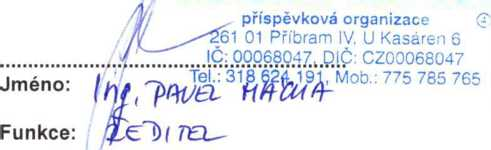 příspěvková organizace
261 01 Příbram IV, U Kasáren 6
IČ: 00068047, DIČ: CZ00068047
Tel.: 318 624 191, Mob.: 775 785 765
Jméno: Ing. PAVEL MÁCHA
Funkce: ŘEDITEL